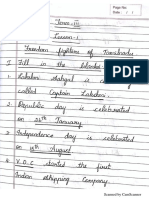 Page No:
Date: / /
Term-III
Lesson-1
Freedom fighters of Tamilnadu
I Fill in the blanks:-
1. Lakshmi Sahgal is commonly
called Captain Lakshmi.
2. Republic day is celebrated
on 26th January.
3. Independence day is celebrated
on 15th August.
4. V.O.C started the first
Indian shipping Company.
Scanned by CamScanner